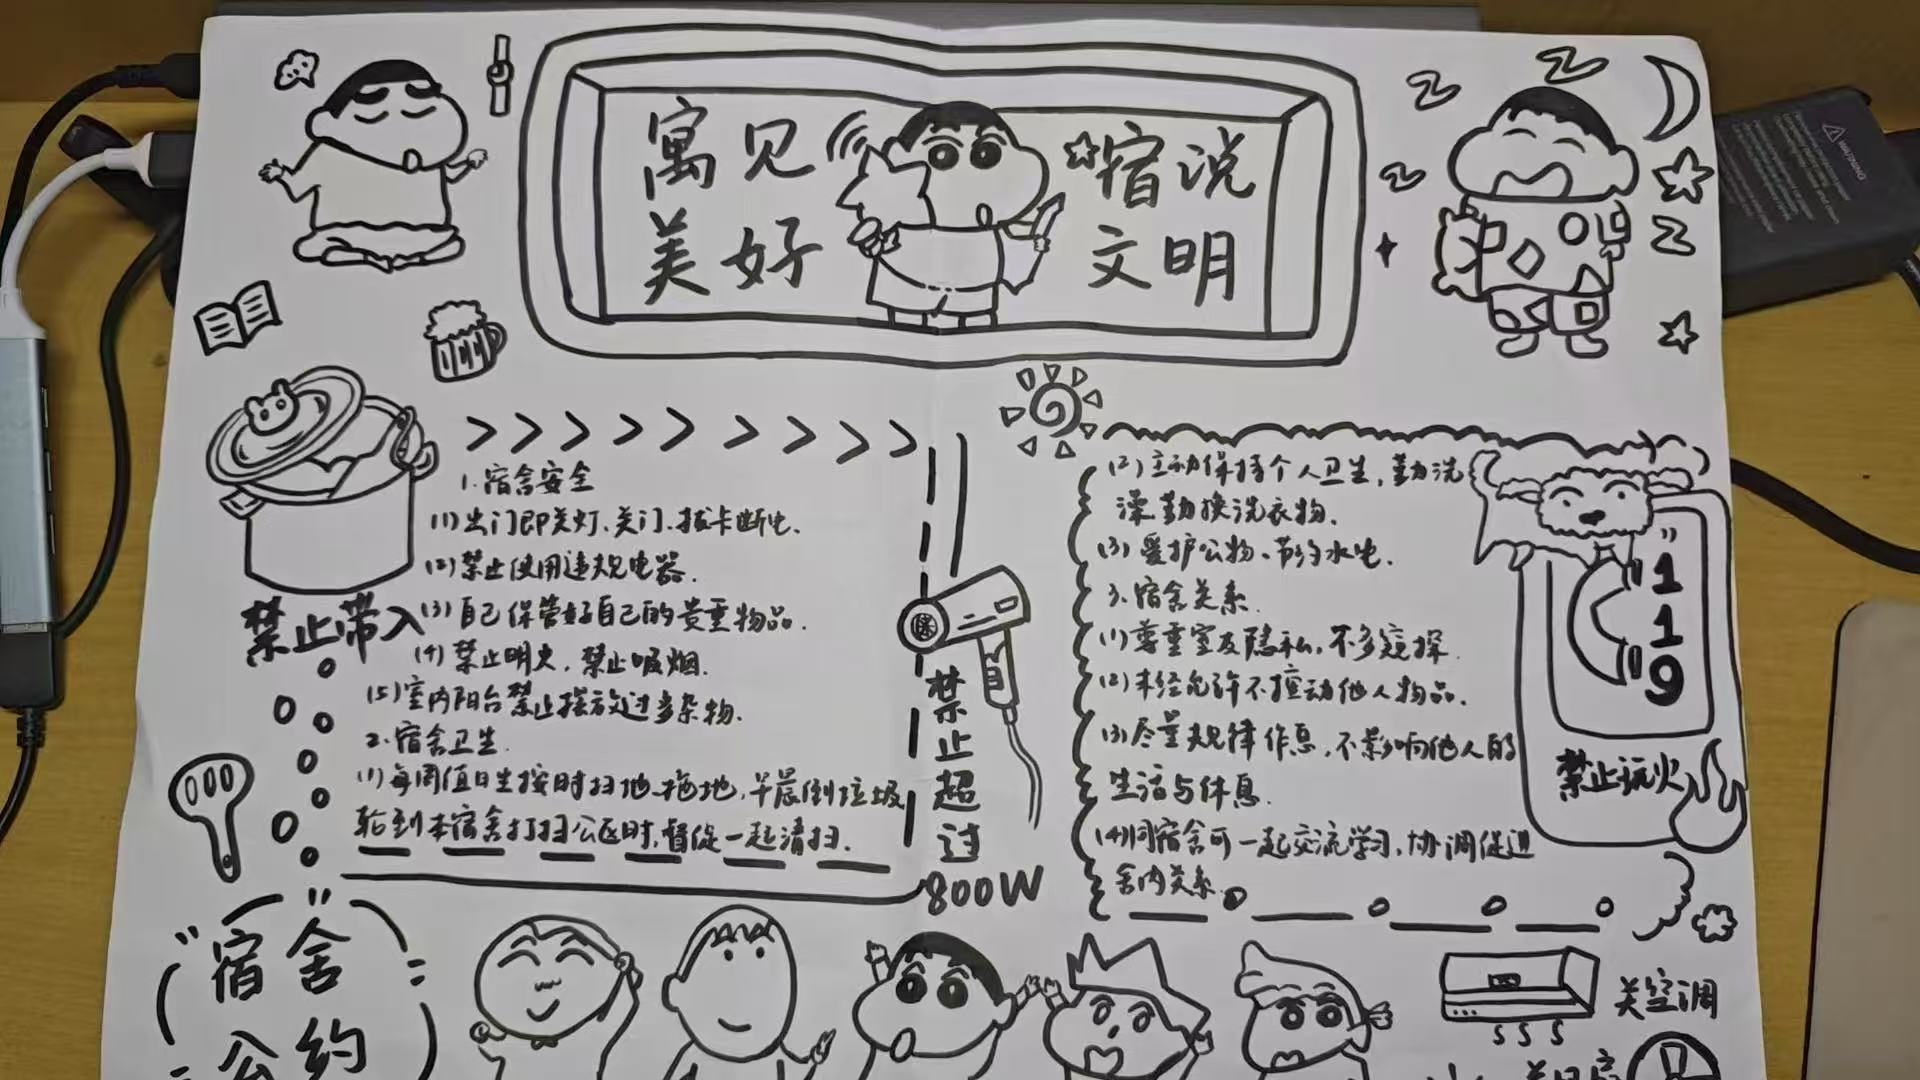 寓见
美好
宿说
文明
1.宿舍安全
(1)出门即关灯、关门、拔卡断电.
(2)禁止使用违规电器.
(3)自己保管好自己的贵重物品.
(4)禁止明火,禁止吸烟.
(5)室内阳台禁止摆放过多杂物.
2.宿舍卫生.
(1)每周值日生按时扫地、拖地,早晨倒垃圾
轮到本宿舍打扫公区时,督促一起清扫.
禁止带入
禁止超过
800W
(2)主动保持个人卫生,勤洗
澡勤换洗衣物.
(3)爱护公物、节约水电.
3.宿舍关系.
(1)尊重室友隐私,不多窥探.
(2)未经允许不擅动他人物品.
(3)尽量规律作息,不影响他人的
生活与休息.
(4)同宿舍可一起交流学习,协调促进
舍内关系.
119
禁止玩火
宿舍
公约
关空调
WARNING